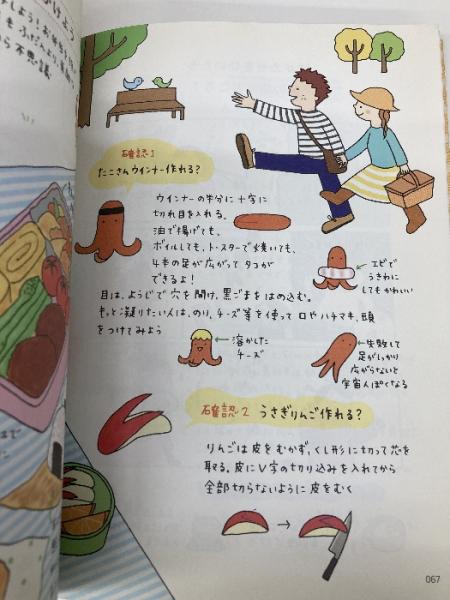 しよう！お弁当も
ふだんより
ら不思議
確認1
たこさんウインナー作れる？
ウインナーの半分に十字に
切れ目を入れる。
油で揚げても、
ボイルしても、トースターで焼いても、
4本の足が広がってタコが
できるよ！
目は、ようじで穴を開け、黒ごまをはめ込む。
もっと凝りたい人は、のり、チーズ等を使って口やハチマキ、頭
をつけてみよう
エビで
うきわに
してもかわいい
溶かした
チーズ
失敗して
足がしっかり
広がらないと
宇宙人ぽくなる
確認2 うさぎりんご作れる？
りんごは皮をむかず、くし形に切って芯を
取る。皮にV字の切り込みを入れてから
全部切らないように皮をむく
067